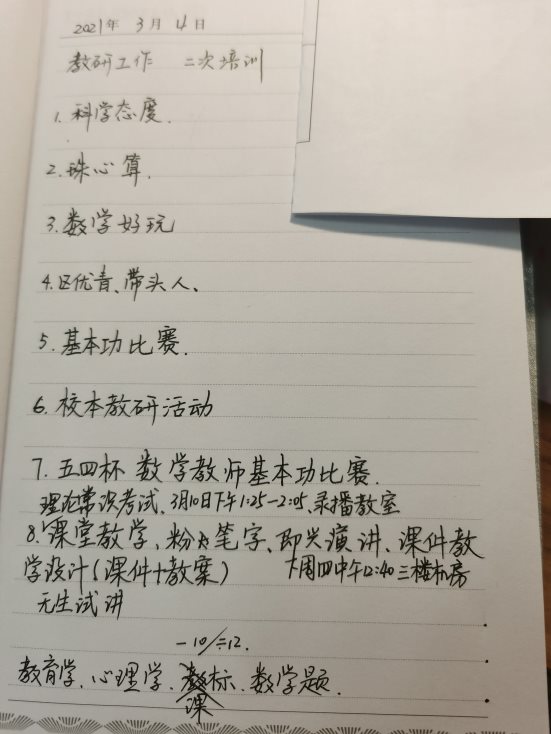 2021年 3月 4日
教研工作 二次培训
1. 科学态度.
2. 珠心算.
3. 数学好玩
4. 区优青、带头人、
5. 基本功比赛.
6. 校本教研活动
7. 五四杯 数学教师基本功比赛.
理论常识考试、3月10日下午1:25-2:05、录播教室
8. 课堂教学、粉笔字、即兴演讲、课件教
学设计(课件+教案) 下周四中午12:40 三楼机房
无生试讲
一10/二12.
教育学、心理学、课标、数学题.